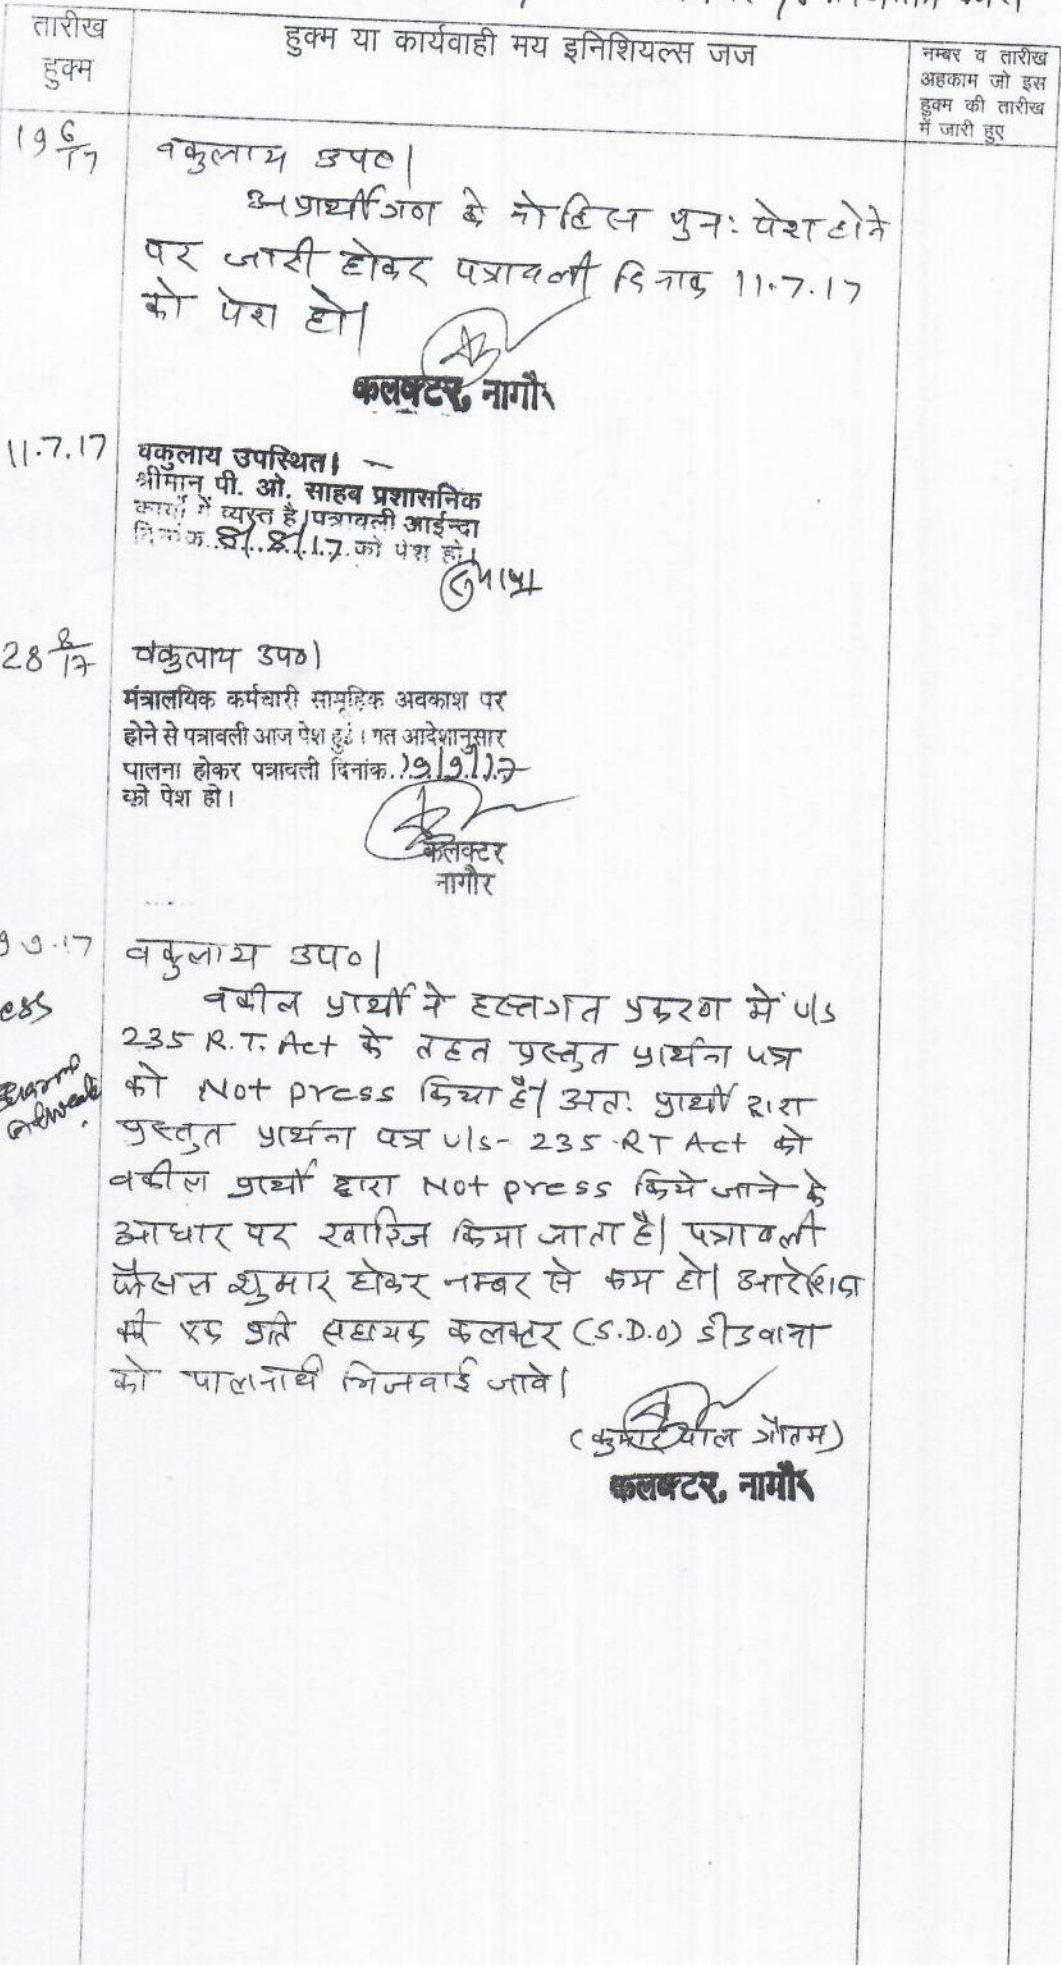 तारीख
हुक्म
हुक्म या कार्यवाही मय इनिशियल्स जज
नम्बर व तारीख
अहकाम जो इस
हुक्म की तारीख
में जारी हुए
19 6/17
वकुलाय उप०।
अप्रार्थीगण के नोटिस पुन: पेश होने
पर जारी होकर पत्रावली दिनांक 11.7.17
को पेश हो।
कलक्टर, नागौर
11.7.17
वकुलाय उपस्थित।
श्रीमान् पी. ओ. साहब प्रशासनिक
कार्यों में व्यस्त है। पत्रावली आईन्दा
दिनांक 8/8/17 को पेश हो।
28 8/17
वकुलाय उप०।
मंत्रालयिक कर्मचारी सामूहिक अवकाश पर
होने से पत्रावली आज पेश हुई। गत आदेशानुसार
पालना होकर पत्रावली दिनांक 19/9/17
को पेश हो।
कलक्टर
नागौर
9 9.17
वकुलाय उप०।
वकील प्रार्थी ने हस्तगत प्रकरण में u/s
235 R.T. Act के तहत प्रस्तुत प्रार्थना पत्र
को Not press किया है। अत: प्रार्थी द्वारा
प्रस्तुत प्रार्थना पत्र u/s- 235 RT Act को
वकील प्रार्थी द्वारा Not press किये जाने के
आधार पर खारिज किया जाता है। पत्रावली
फैसल शुमार होकर नम्बर से कम हो। आदेशिका
की एक प्रति सहायक कलक्टर (S.D.O) डीडवाना
को पालनार्थ भिजवाई जावे।
(कुमार पाल गौतम)
कलक्टर, नागौर